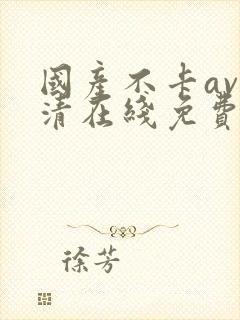 國產不卡av
清在綫免費
徐芳